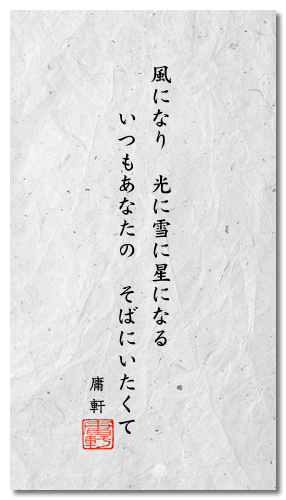 風になり　光に雪に星になる
いつもあなたの　そばにいたくて
庸軒
庸軒